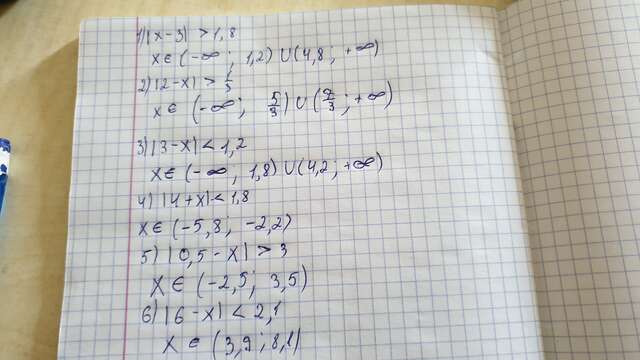 1) |x-3| > 1,8
x ∈ (-∞; 1,2) ∪ (4,8; +∞)
2) |2-x| > 1/3
x ∈ (-∞; 5/3) ∪ (7/3; +∞)
3) |3-x| < 1,2
x ∈ (-∞; 1,8) ∪ (4,2; +∞)
4) |4+x| < 1,8
x ∈ (-5,8; -2,2)
5) |0,5-x| > 3
x ∈ (-2,5; 3,5)
6) |6-x| < 2,1
x ∈ (3,9; 8,1)